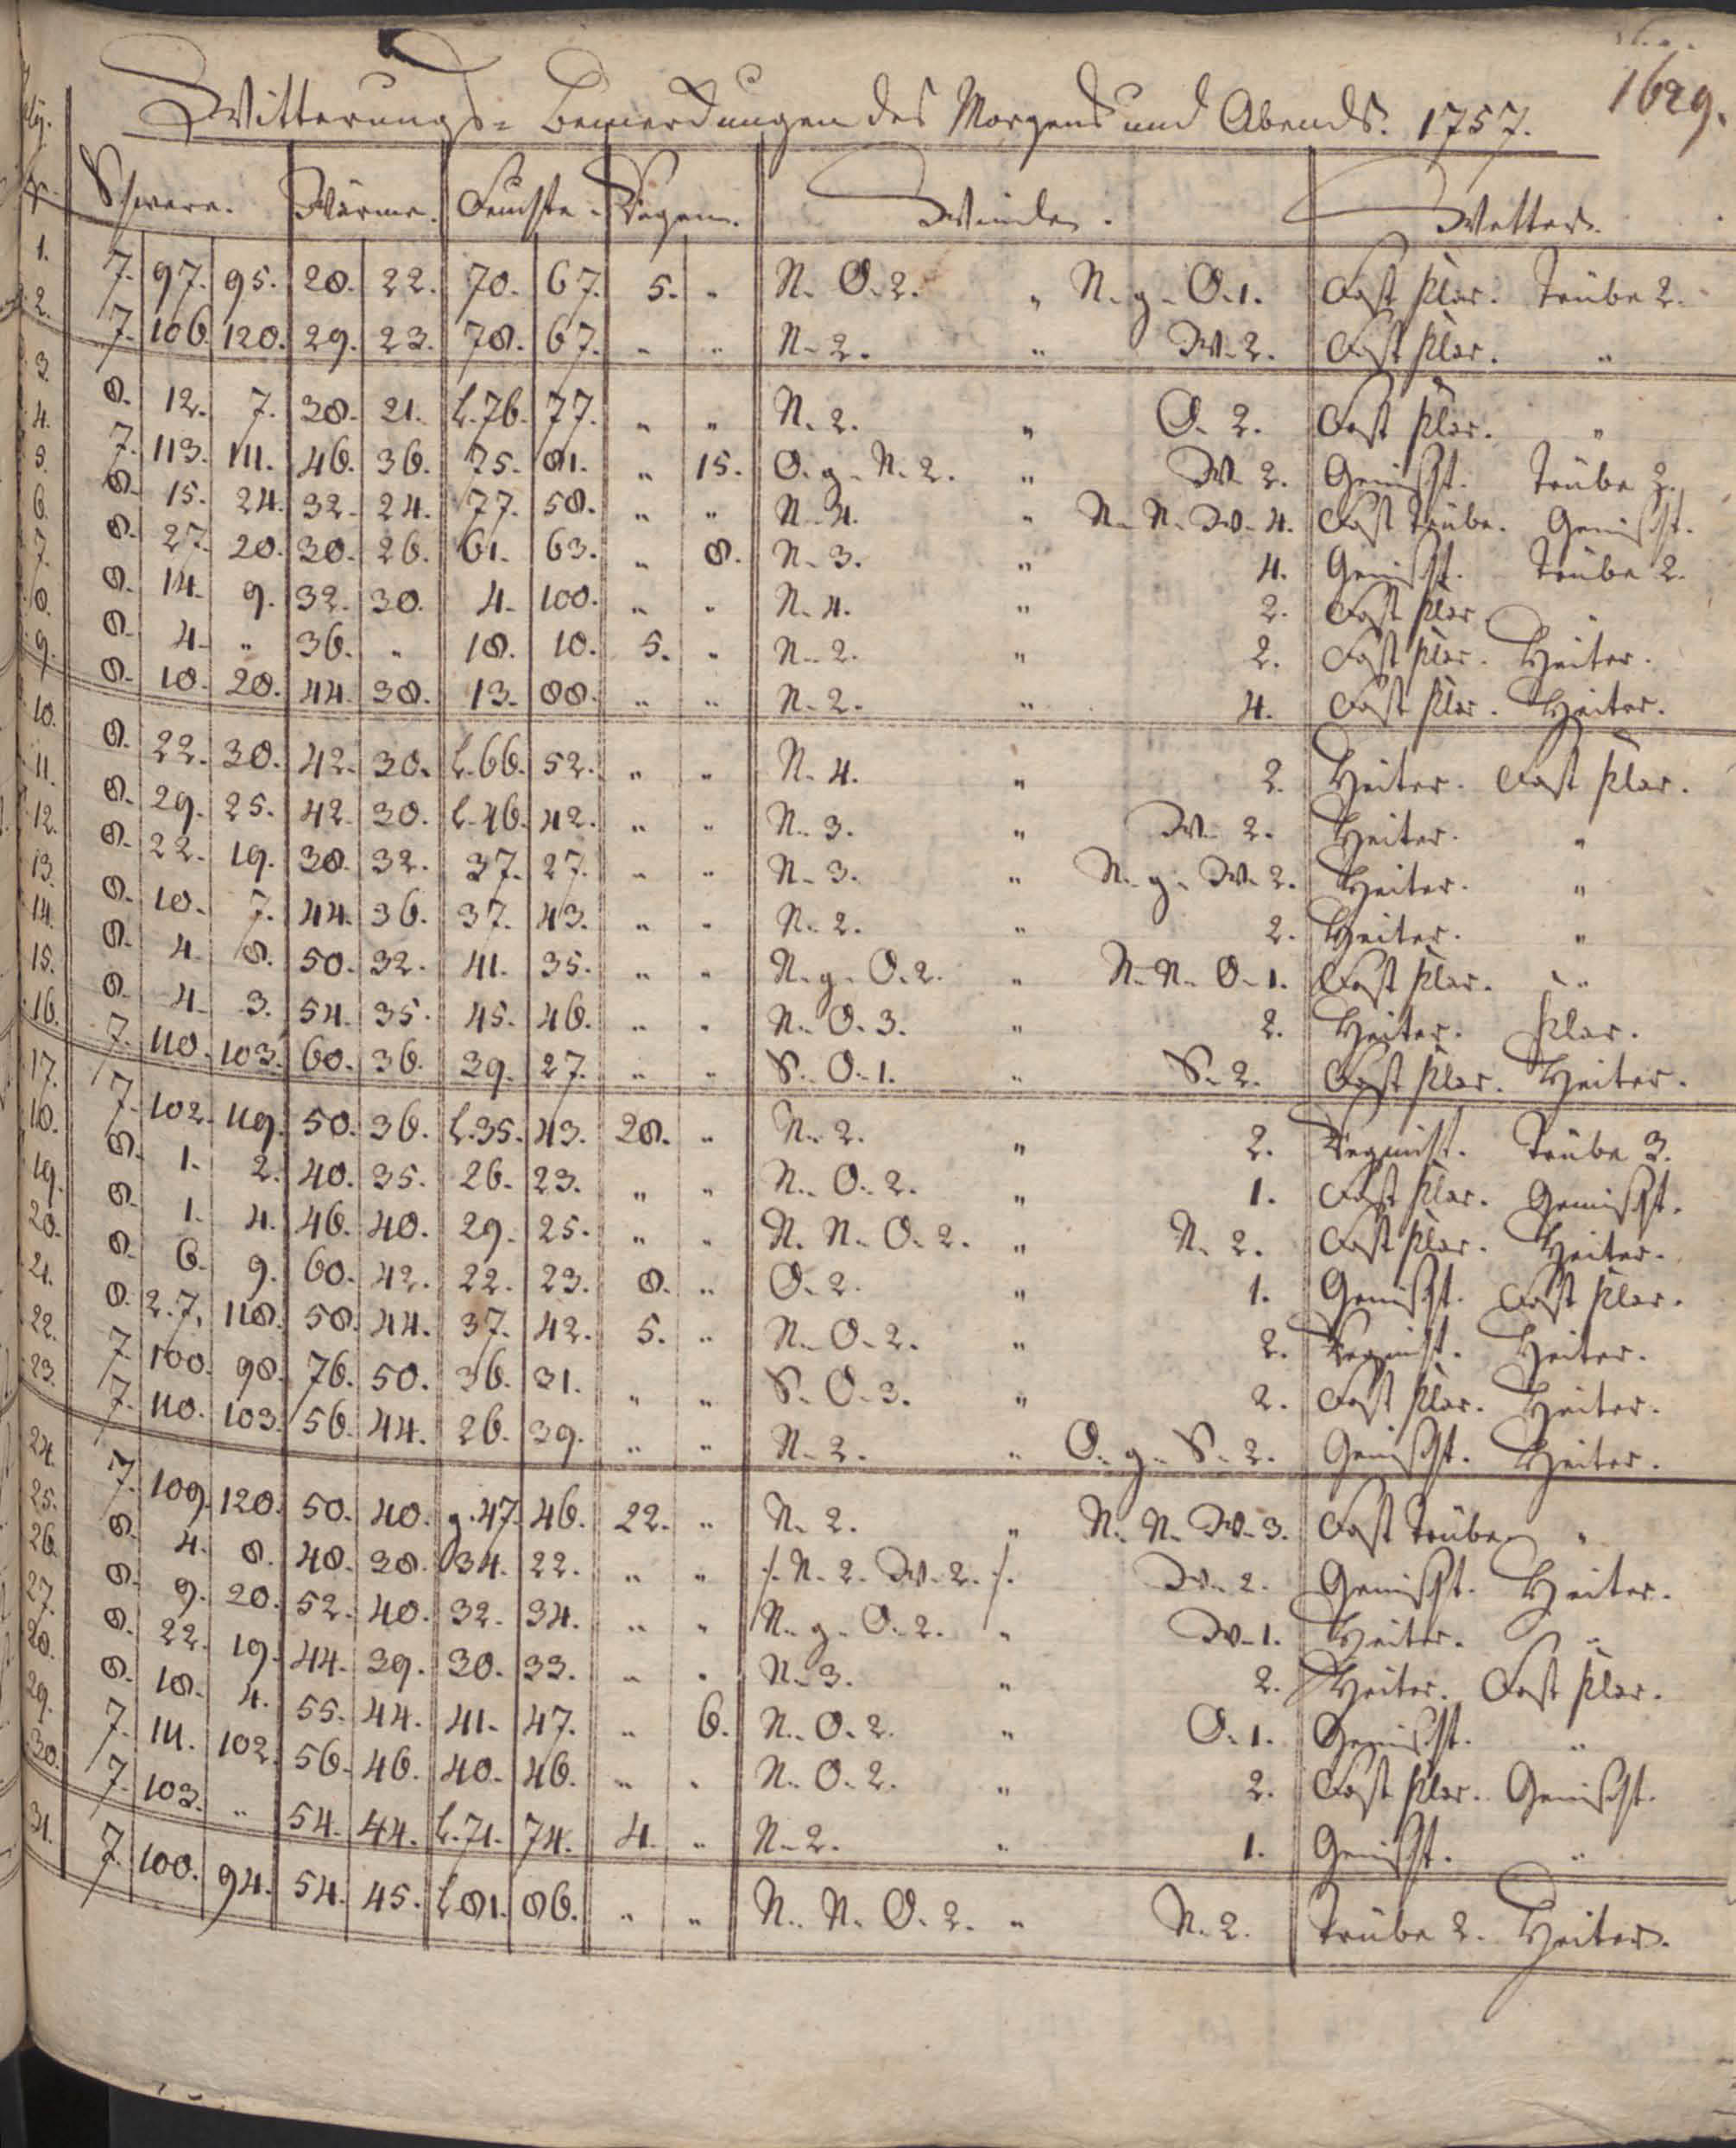 1629.
Witterungs- Bemerckungen des Morgens und Abends. 1757.
Schwere. Wärme. Feuchte. Regen. Winde. Wetter.
1. 7. 97. 95. 28. 22. 70. 67. 5. „ N. O. 2. „ N. g. O. 1. Fast klar. Trübe 2.
2. 7. 106. 120. 29. 23. 78. 67. „ „ N. 2. „ W. 2. Fast klar. „
3. 8. 12. 7. 38. 21. L. 76. 77. „ „ N. 2. „ O. 2. Fast klar. „
4. 7. 113. 111. 46. 36. 75. 81. „ 15. O. g. N. 2. „ W. 2. Gemischt. Trübe 2.
5. 8. 15. 24. 32. 24. 77. 58. „ „ N. 4. „ N. N. W. 4. Fast Trübe. Gemischt.
6. 8. 27. 20. 30. 26. 61. 63. „ 8. N. 3. „ 4. Gemischt. Trübe 2.
7. 8. 14. 9. 32. 30. 4. 100. „ „ N. 4. „ 2. Fast klar „
8. 8. 4. „ 36. „ 18. 10. 5. „ N. 2. „ 2. Fast klar. Heiter.
9. 8. 10. 20. 44. 38. 13. 88. „ „ N. 2. „ 4. Fast klar. Heiter.
10. 8. 22. 30. 42. 30. L. 66. 52. „ „ N. 4. „ 2. Heiter. Fast klar.
11. 8. 29. 25. 42. 30. L. 46. 42. „ „ N. 3. „ W. 2. Heiter. „
12. 8. 22. 19. 38. 32. 37. 27. „ „ N. 3. „ N. g. W. 2. Heiter. „
13. 8. 10. 7. 44. 36. 37. 43. „ „ N. 2. „ 2. Heiter. „
14. 8. 4. 8. 50. 32. 41. 35. „ „ N. g. O. 2. „ N. N. O. 1. Fast klar. „
15. 8. 4. 3. 54. 35. 45. 46. „ „ N. O. 3. „ 2. Heiter. klar.
16. 7. 110. 103. 60. 36. 39. 27. „ „ S. O. 1. „ S. 2. Fast klar. Heiter.
17. 7. 102. 119. 50. 36. L. 35. 43. 28. „ N. 2. „ 2. Regnicht. Trübe 3.
18. 8. 1. 2. 40. 35. 26. 23. „ „ N. O. 2. „ 1. Fast klar. Gemischt.
19. 8. 1. 4. 46. 40. 29. 25. „ „ N. N. O. 2. „ N. 2. Fast klar. Heiter.
20. 8. 6. 9. 60. 42. 22. 23. 8. „ O. 2. „ 1. Gemischt. Fast klar.
21. 8. 2. 7. 118. 58. 44. 37. 42. 5. „ N. O. 2. „ 2. Regnicht. Heiter.
22. 7. 100. 98. 76. 50. 36. 31. „ „ S. O. 3. „ 2. Fast klar. Heiter.
23. 7. 110. 103. 56. 44. 26. 39. „ „ N. 2. „ O. g. S. 2. Gemischt. Heiter.
24. 7. 109. 120. 50. 40. g. 47. 46. 22. „ N. 2. „ N. N. W. 3. Fast Trübe „
25. 8. 4. 8. 48. 38. 34. 22. „ „ /. N. 2. W. 2. /. W. 2. Gemischt. Heiter.
26. 8. 9. 20. 52. 40. 32. 34. „ „ N. g. O. 2. „ W. 1. Heiter. „
27. 8. 22. 19. 44. 39. 30. 33. „ „ N. 3. „ 2. Heiter. Fast klar.
28. 8. 18. 4. 55. 44. 41. 47. „ 6. N. O. 2. „ O. 1. Gemischt. „
29. 7. 111. 102. 56. 46. 40. 46. „ „ N. O. 2. „ 2. Fast klar. Gemischt.
30. 7. 103. „ 54. 44. L. 71. 74. 4. „ N. 2. „ 1. Gemischt. „
31. 7. 100. 94. 54. 45. L. 81. 86. „ „ N. N. O. 2. „ N. 2. Trübe 2. Heiter.